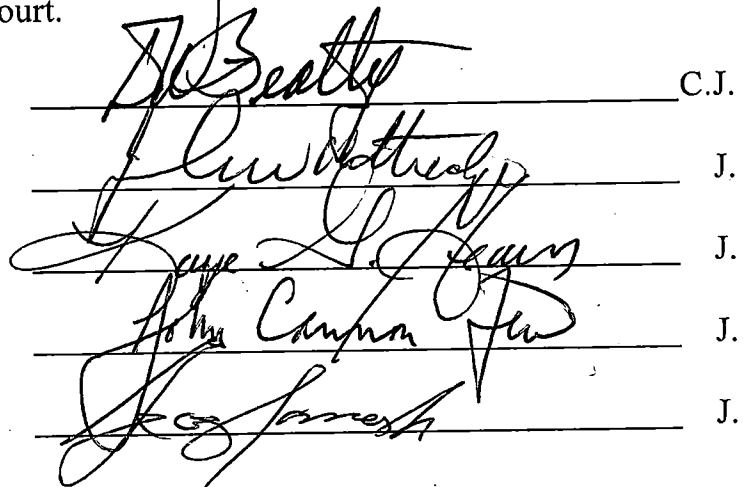 ourt.
D Beatty C.J.
J.
Kaye G. Hearn J.
John Cannon Few J.
J.